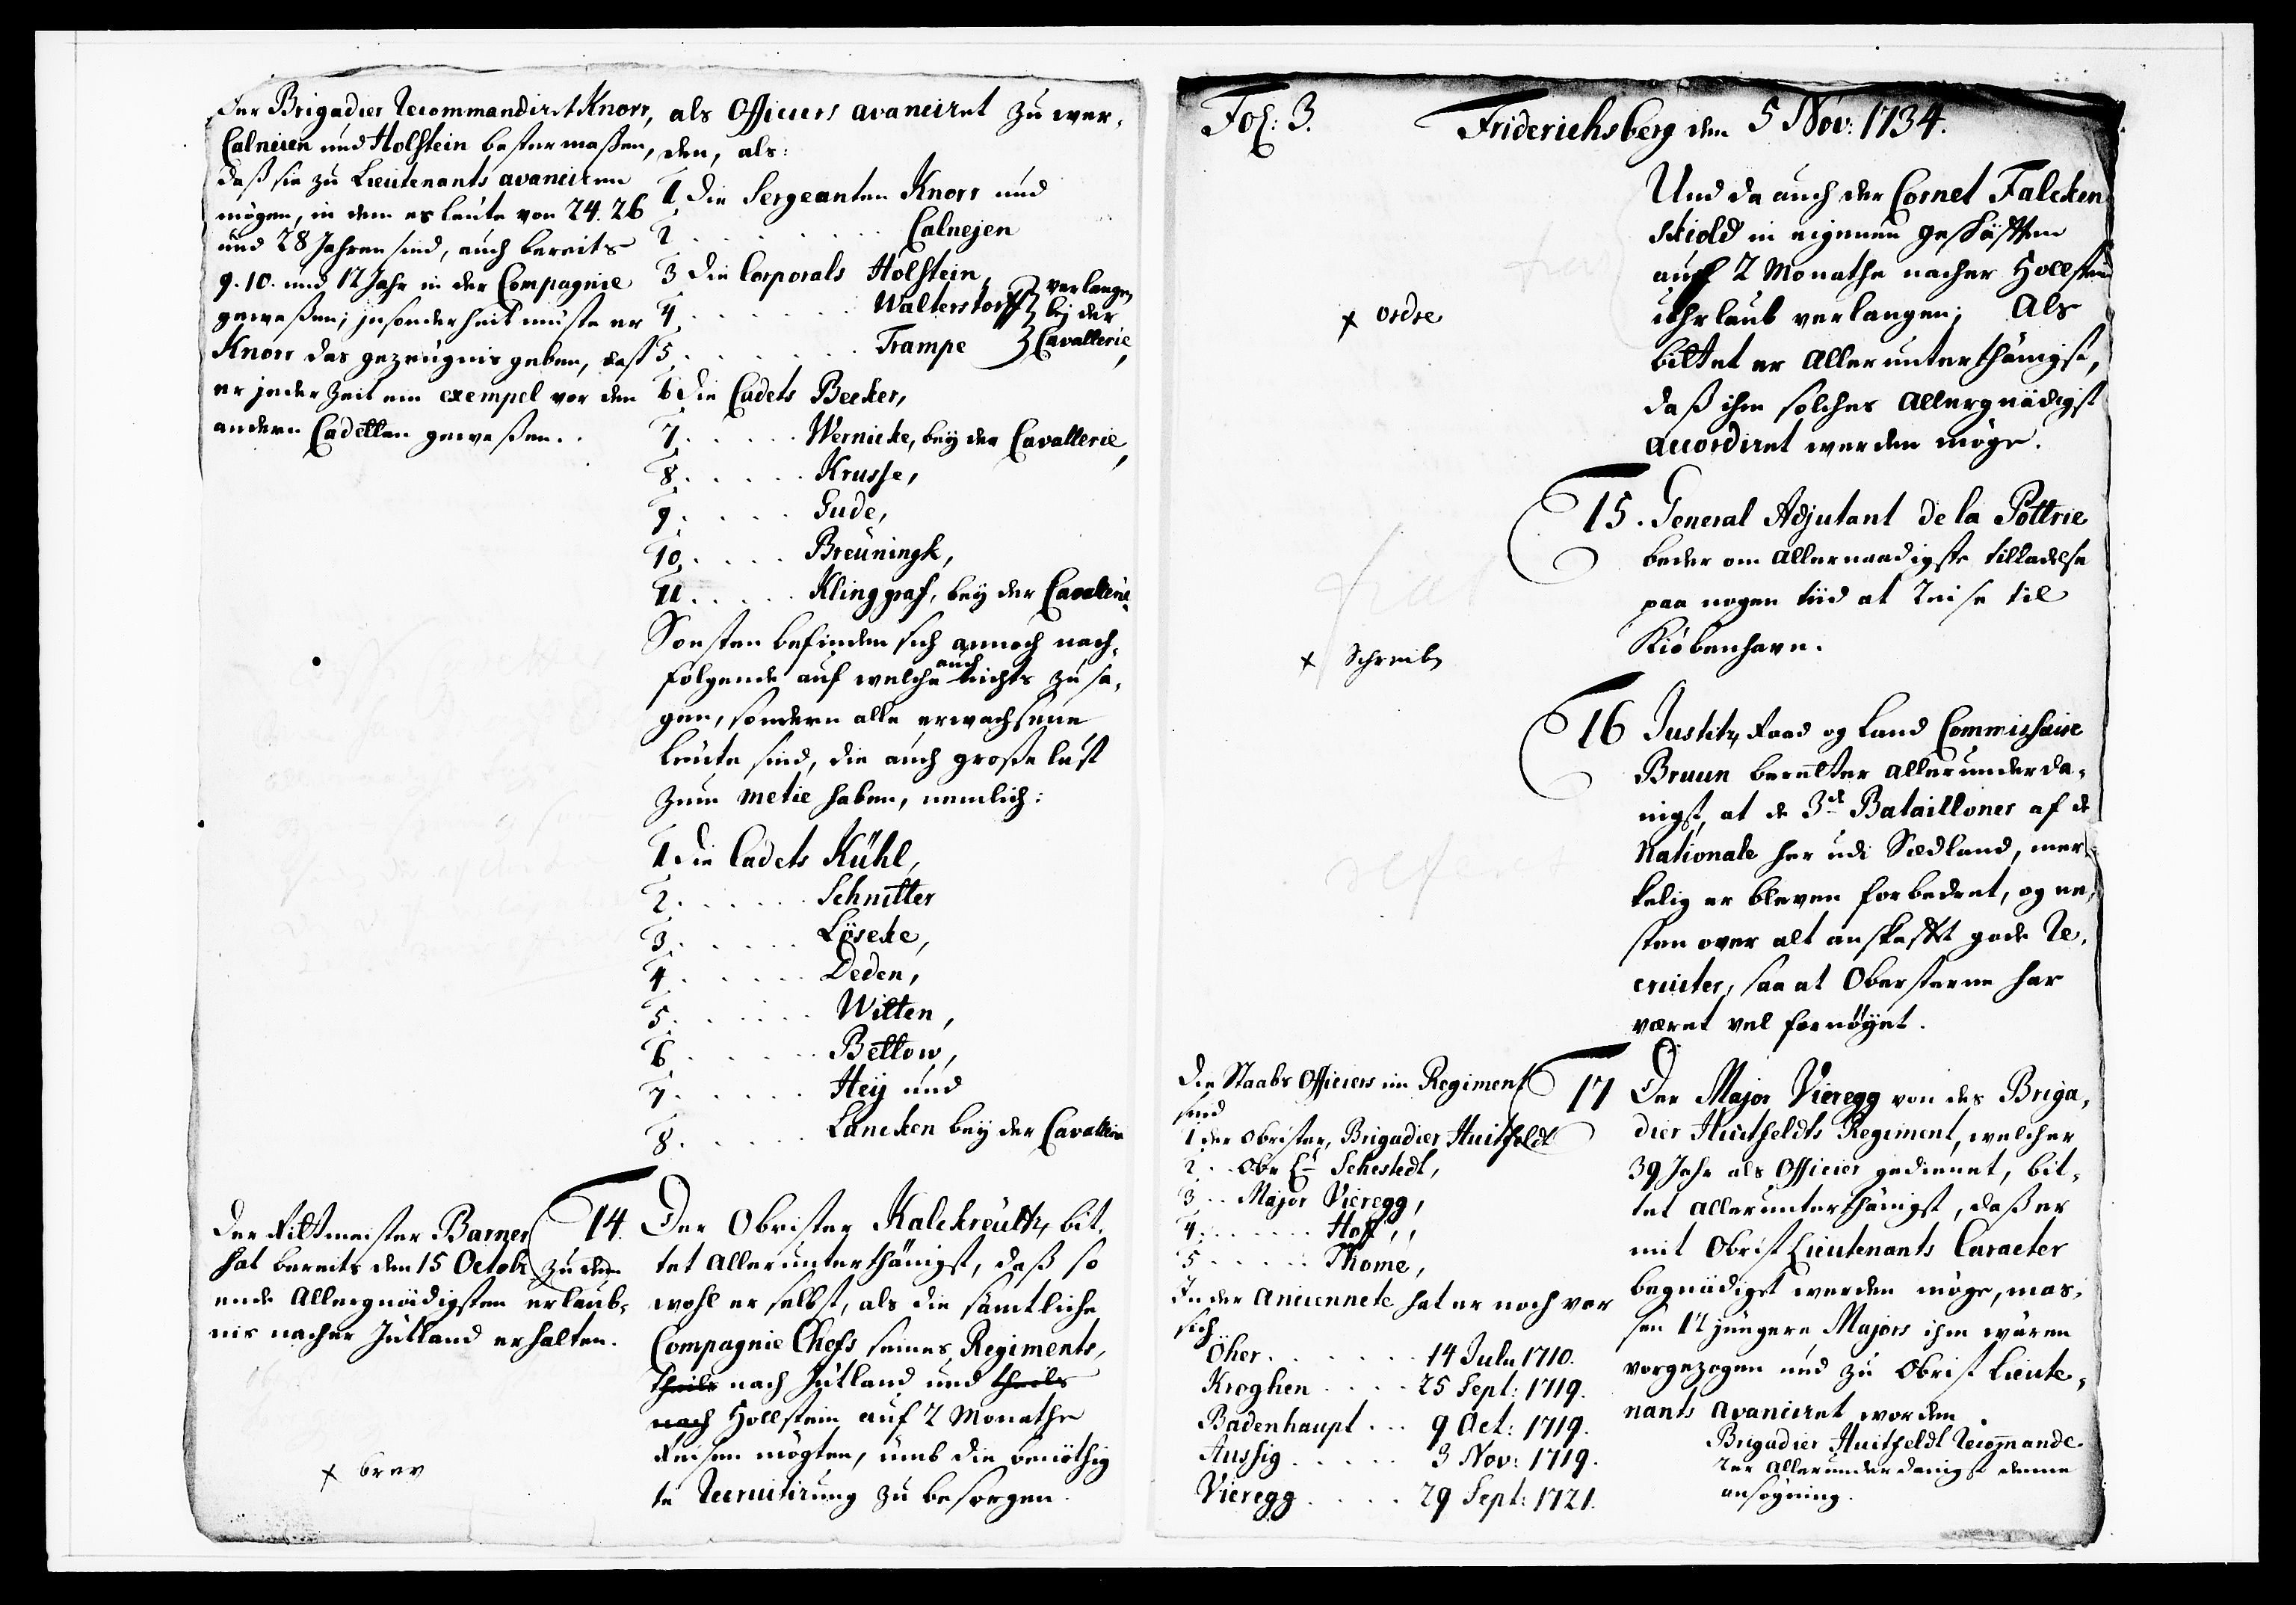 Der Brigadier Recommandiret Knorr,
Calneien und Holstein bestermaßen,
daß sie zu Lieutenants avanciren
mögen, in dem es leute von 24. 26
und 28 Jahren sind, auch bereits
9. 10. und 12 Jahr in der Compagnie
geweßen; insonderheit müste er
Knorr das gezeugnis geben, daß
er jeder Zeit ein exempel vor den
andern Cadetten geweßen.
als Officiers avanciret zu wer-
den, als:
1 die Sergeanten Knorr und
2 . . . . . . . Calnejen
3 die Corporals Holstein,
4 . . . . . . Walterstorff } verlangen
bej der
5 . . . . . . Trampe } Cavallerie,
6 die Cadets Becker,
7 . . . . . Wernicke, beÿ der Cavallerie,
8 . . . . . Krusse,
9 . . . . Gude,
10 . . . . Breüningk,
11 . . . . Klinggraf, beÿ der Cavallerie.
Sonsten befinden sich annoch nach-
folgende auf welche auch nichts zu sa-
gen, sondern alle erwachsene
leute sind, die auch große lust
zum metie haben, nemlich:
1 die Cadets Kühl,
2 . . . . . . Schnitter
3 . . . . . Löseke,
4 . . . . . Deden,
5 . . . . . Witten,
6 . . . . . Bettow,
7 . . . . . Heÿ und
8 . . . . . Lancken beÿ der Cavallerie
Der Rittmeister Barner
hat bereits den 15 Octobr zu dem
ende Allergnädigsten erlaub-
nis nacher Jütland erhalten.
x brev
14. Der Obrister Kalckreütz, bit-
tet allerunterthänigst, daß so
wohl er selbst, als die sämtliche
Compagnie Chefs seines Regiments,
theils nach Jütland und theils
nach Hollstein auf 2 Monathe
Reisen mögten, umb die benöthig
te Recruitirung zu besorgen.
Fol: 3. Friderichsberg den 5 Nov: 1734.
Und da auch der Cornet Falcken
skiold in eigenen geschäfften
auf 2 Monathe nacher Hollstein
uhrlaub verlangen; Als
bittet er allerunterthänigst,
daß ihm solches allergnädigst
accordiret werden möge.
x ordre
15. General Adjutant de la Pottrie
beder om allernaadigste tilladelse
paa nogen tiid at Reise til
Kiöbenhavn.
x Schreib
16 Justitz Raad og Land Commissaire
Bruun beretter allerunderda-
nigst, at de 3de Batailloner af de
Nationale her udi Siedland, mer-
kelig er bleven forbedret, og ne-
sten over alt anskaffet gode Re-
cruter, saa at Obersterne har
været vel fornöÿet.
Die Staabs Officiers im Regiment
sind
1 der Obrister, Brigadier Huitfeldt
2 . . Obr Lt Sehestedt,
3 . . Major Vieregg,
4 . . . . . . Hoff,
5 . . . . . Thome,
In der Anciennete hat er noch vor
sich
Öher . . . . . . 14 July 1710.
Kroghen . . . . 25 Sept: 1719.
Badenhaupt . . . 9 Oct: 1719.
Aussig . . . . . 3 Nov: 1719.
Vieregg . . . . 29 Sept: 1721.
17 Der Major Vieregg von des Briga-
dier Huitfeldts Regiment, welcher
39 Jahr als Officier gedienet, bit-
tet allerunterthänigst, daß er
mit Obrist Lieutenants Caracter
begnädiget werden möge, mas-
sen 12 jüngere Majors ihm wären
vorgezogen und zu Obrist Lieute-
nants avanciret worden
Brigadier Huitfeldt Recommande-
rer allerunderdanigst denne
ansögning.